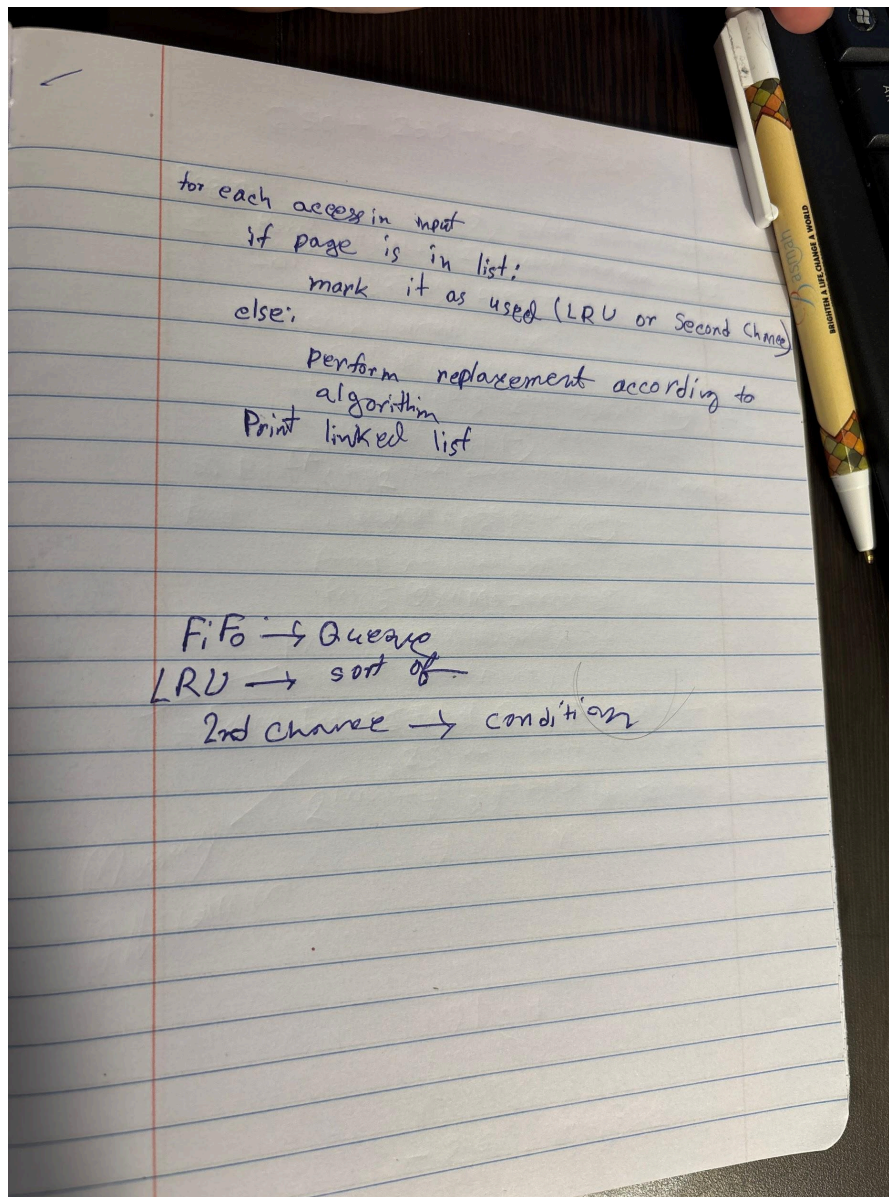 for each access in input
if page is in list:
mark it as used (LRU or Second Chance)
else:
perform replacement according to
algorithim
Print linked list
FiFo → Queue
LRU → sort of
2nd chance → condition
Rasmyan
BRIGHTEN A LIFE, CHANGE A WORLD